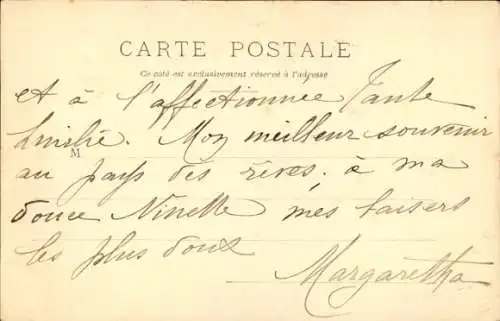 CARTE POSTALE
Ce côté est exclusivement réservé à l'adresse
et à l'affectionnée Tante
Emilie. Mon meilleur souvenir
M
au pays des rêves. à ma
douce Ninette mes baisers
les plus doux
Margaretha